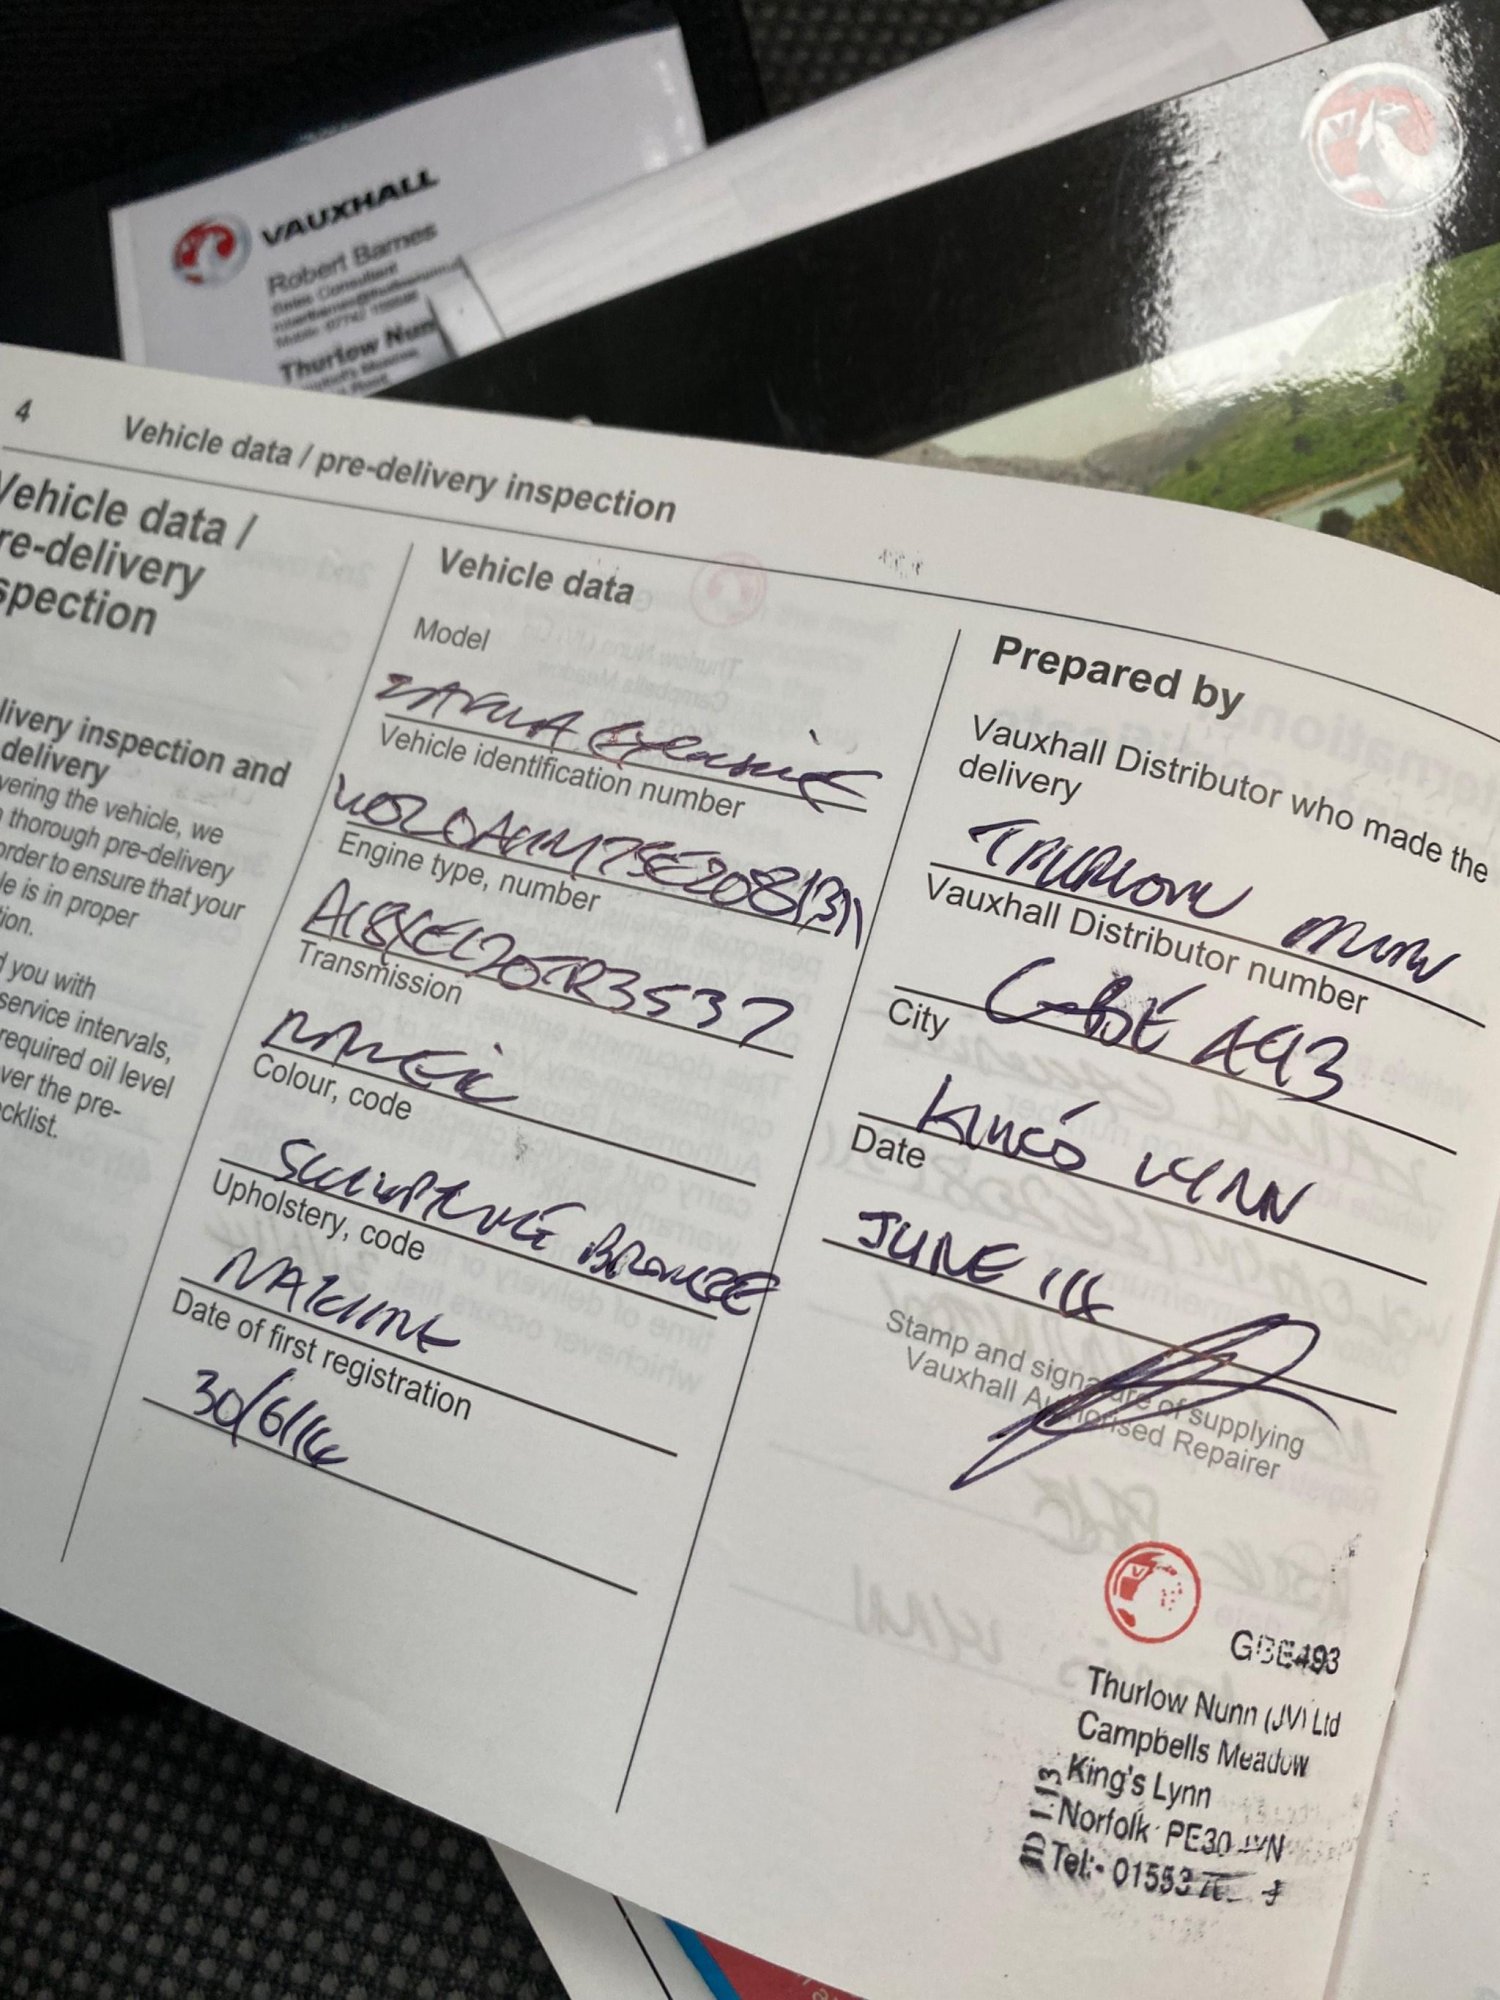 VAUXHALL
Robert Barnes
Sales Consultant
Thurlow Nun
4 Vehicle data / pre-delivery inspection
Vehicle data /
re-delivery
spection
livery inspection and
delivery
vering the vehicle, we
thorough pre-delivery
order to ensure that your
le is in proper
tion.
d you with
service intervals,
required oil level
ver the pre-
cklist.
Vehicle data
Model
ZAFIRA EXCLUSIVE
Vehicle identification number
Engine type, number
Transmission
MANUAL
Colour, code
BRONZE
Upholstery, code
Date of first registration
30/6/14
Prepared by
Vauxhall Distributor who made the
delivery
THURLOW NUNN
Vauxhall Distributor number
GBE 493
City
KINGS LYNN
Date
JUNE 14
Stamp and signature of supplying
Vauxhall Authorised Repairer
GBE493
Thurlow Nunn (JV) Ltd
Campbells Meadow
King's Lynn
Norfolk PE30
Tel:- 01553